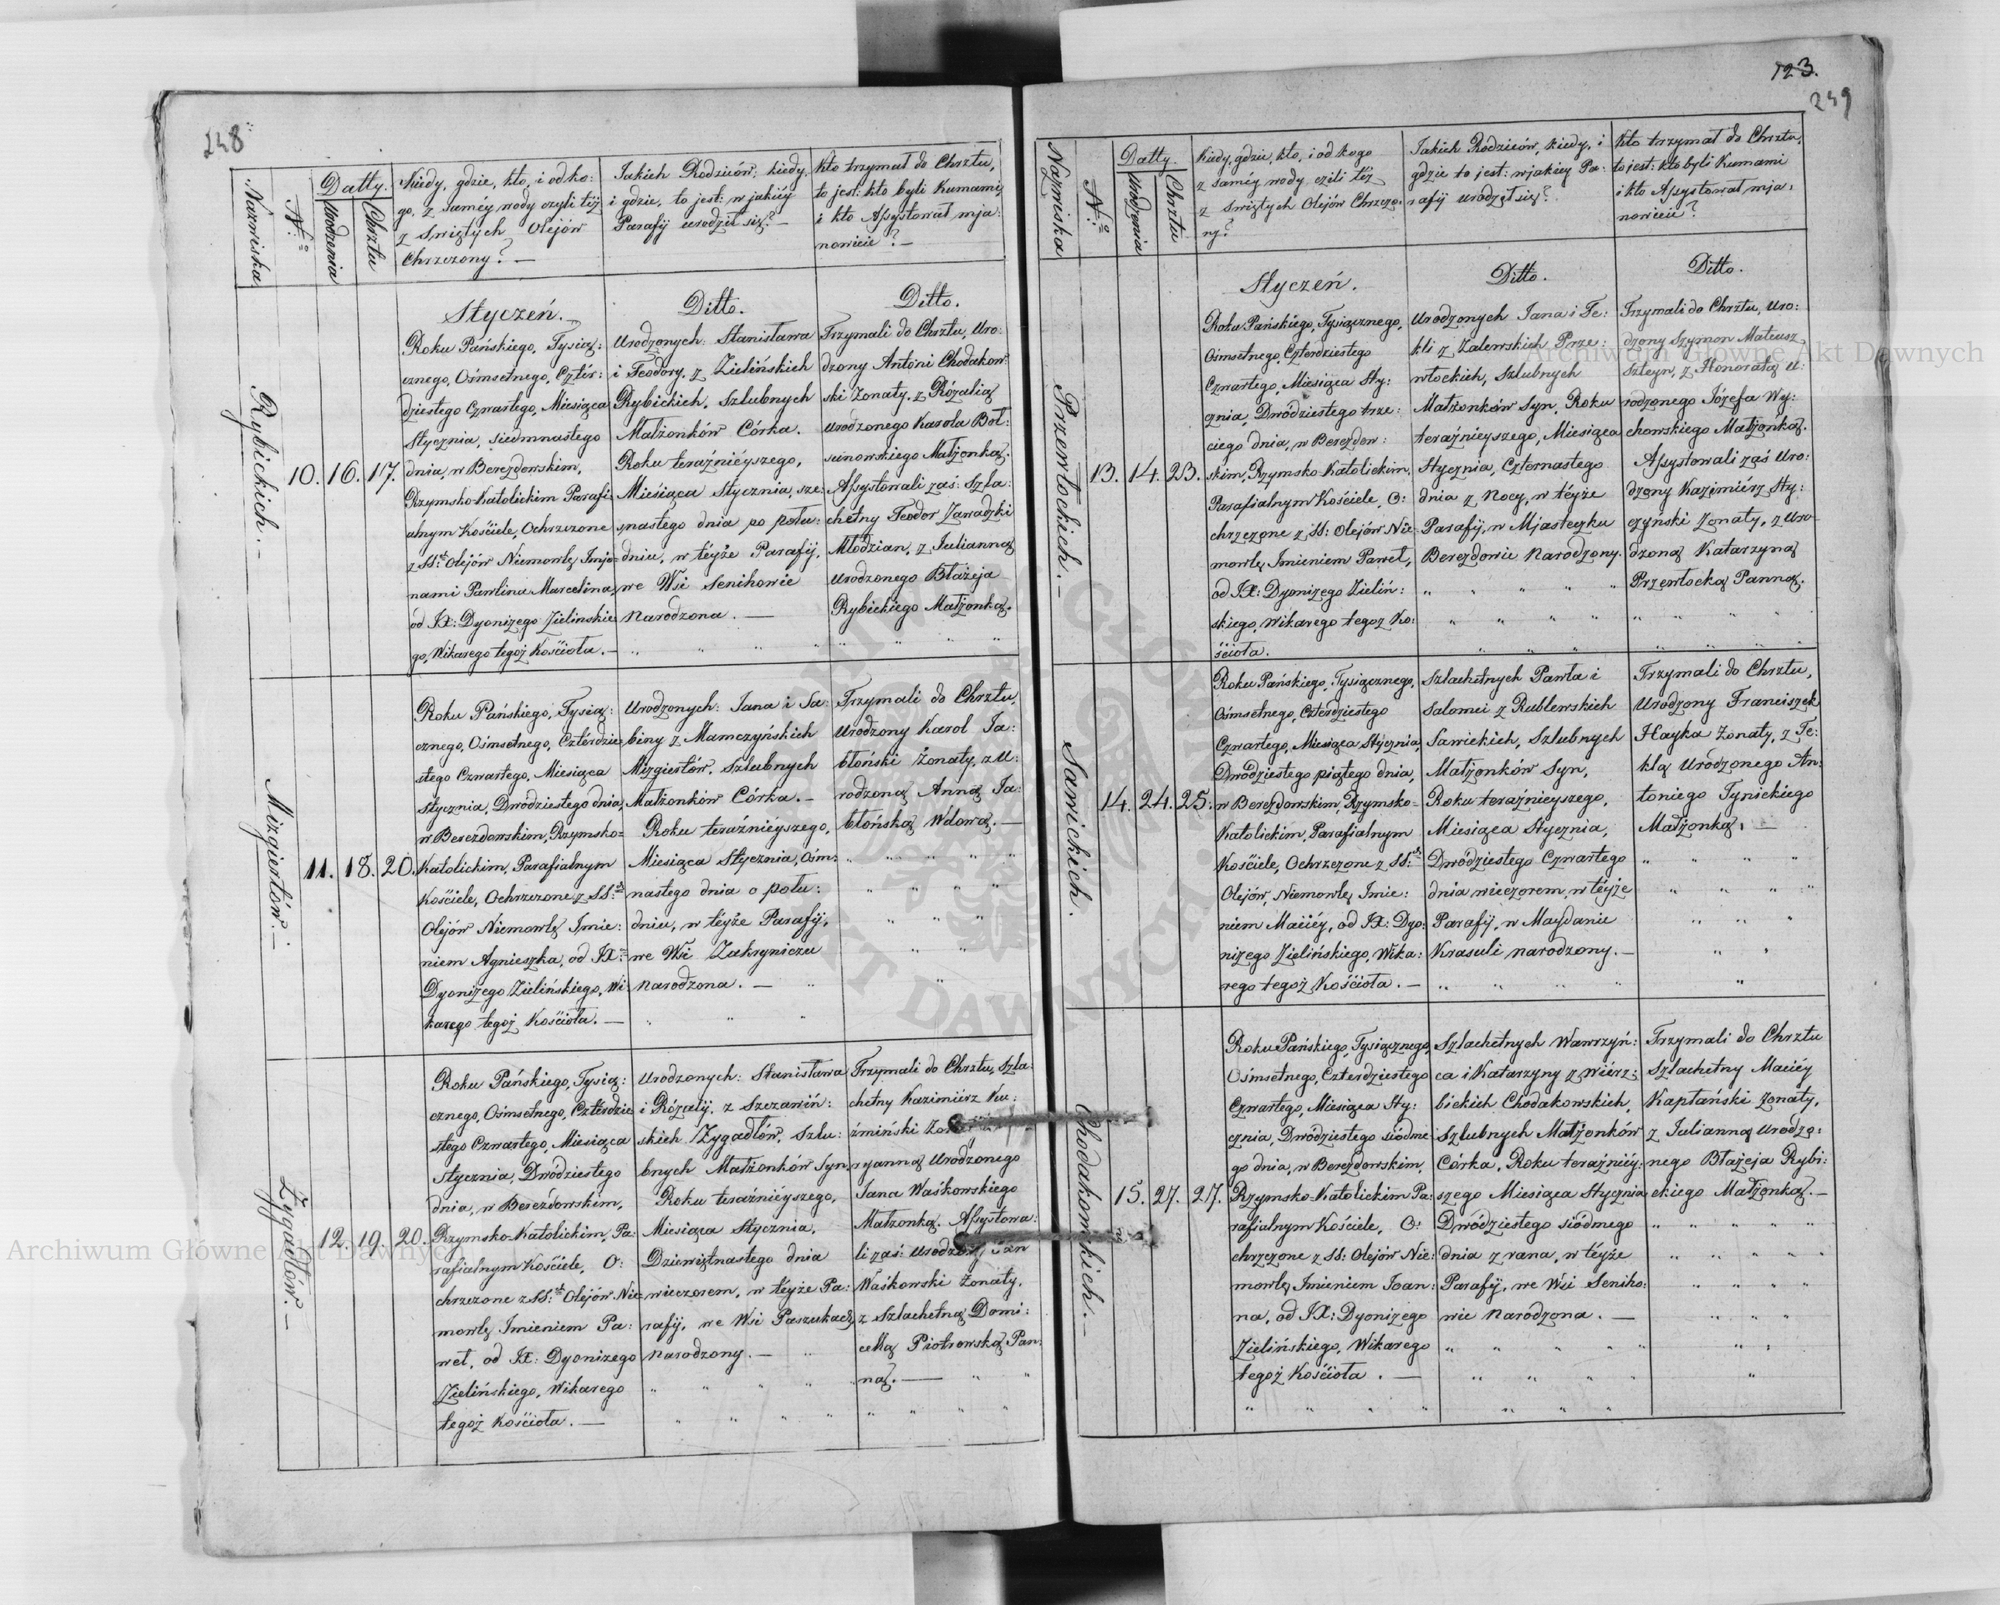 248
Nazwiska
N:o
Datty.
Urodzenia
Chrztu
Kiedy, gdzie, kto, i od ko:
go, z saméy wody czyli téż
z Swiętych Olejów
Chrzczony? —
Jakich Rodziców, kiedy,
i gdzie, to jest: w jakiéy
Parafij urodził się? —
Kto trzymał do Chrztu,
to jest: kto byli Kumami,
i kto Assystował mja:
nowicie? —
Rybickich. —
10. 16. 17.
Styczeń. —
Roku Pańskiego, Tysią:
cznego, Ośmsetnego, Cztér:
dziestego Czwartego, Miesiąca
Stycznia, siedmnastego
dnia, w Berezdowskim,
Rzymsko-Katolickim Parafi:
alnym Kościele, Ochrzczone
z SS:ch Olejów Niemowlę Imio:
nami Pawlina Marcelina,
od JX: Dyonizego Zielinskie:
go, Wikarego tegoż Kościoła. —
Ditto.
Urodzonych: Stanisława
i Teodory, z Zielińskich
Rybickich, Szlubnych
Małżonków Córka.
Roku teraźniéyszego,
Miesiąca Stycznia, sze:
snastego dnia po połu:
dniu, w téyże Parafij,
we Wsi Senihowie
Narodzona. —
Ditto.
Trzymali do Chrztu, Uro:
dzony Antoni Chodakow:
ski Żonaty, z Rózalią
Urodzonego Karola Boł:
sunowskiego Małżonką.
Assystowali zaś: Szla:
chetny Teodor Zawadzki
Młodzian, z Julianną
Urodzonego Błażeja
Rybickiego Małżonką.
Mizgiertów. —
11. 18. 20.
Roku Pańskiego, Tysią:
cznego, Ośmsetnego, Czterdzie
stego Czwartego, Miesiąca
Stycznia, Dwódziestego dnia,
w Berezdowskim, Rzymsko=
Katolickim, Parafialnym
Kościele, Ochrzczone z SS:ch
Olejów Niemowlę Imie:
niem Agnieszka, od JX:
Dyonizego Zielińskiego, Wi:
karego tegoż Kościoła. —
Urodzonych: Jana i Sa
biny z Mamczyńskich
Mizgiertów, Szlubnych
Małżonków Córka. —
Roku teraźniéyszego,
Miesiąca Stycznia, Ośm:
nastego dnia o połu:
dniu, w téyże Parafij,
we Wsi Zakryniczu
Narodzona. —
Trzymali do Chrztu,
Urodzony Karol Ja:
błoński Żonaty, z U:
rodzoną Anną Ja:
błońską Wdową. —
Żygadłów. —
12. 19. 20.
Roku Pańskiego, Tysią:
cznego, Ośmsetnego, Czterdzie
stego Czwartego, Miesiąca
Stycznia, Dwódziestego
dnia, w Berezdowskim,
Rzymsko-Katolickim, Pa:
rafialnym Kościele, O:
chrzczone z SS:ch Olejów Nie
mowlę Imieniem Pa:
weł, od JX: Dyonizego
Zielińskiego, Wikarego
tegoż Kościoła. —
Urodzonych: Stanisława
i Rózalij, z Szczawiń:
skich Zygadłów, Szlu:
bnych Małżonków Syn,
Roku teraźniéyszego,
Miesiąca Stycznia,
Dziewiętnastego dnia
wieczorem, w téyże Pa:
rafij, we Wsi Paszukach
Narodzony. —
Trzymali do Chrztu, Szla:
chetny Kazimiérz Ku:
źmiński
ryanną Urodzonego
Jana Waśkowskiego
Małżonką. Assystowa:
li zaś: Urodzony Jan
Waśkowski Żonaty,
z Szlachetną Domi:
cellą Piotrowską Pan:
ną. —
123.
249
Nazwiska
N:o
Datty.
Urodzenia
Chrztu
Kiedy, gdzie, kto, i od kogo
z saméy wody czili téż
z Swiętych Olejów Chrzczo:
ny?
Jakich Rodziców, kiedy, i
gdzie to jest: w jakiey Pa:
rafij urodził się?
Kto trzymał do Chrztu,
to jest: kto byli Kumami
i kto Assystował mja:
nowicie?
Przewłockich. —
13. 14. 23.
Styczeń.
Roku Pańskiego, Tysiącznego,
Ośmsetnego, Czterdziestego
Czwartego, Miesiąca Sty:
cznia, Dwódziestego trze:
ciego dnia, w Berezdow:
skim, Rzymsko-Katolickim,
Parafialnym Kościele, O:
chrzczone z SS: Olejów Nie:
mowlę Imieniem Paweł,
od JX: Dyonizego Zieliń:
skiego, Wikarego tegoż Ko:
ścioła.
Ditto.
Urodzonych Jana i Te:
kli z Zalewskich Prze:
włockich, Szlubnych
Małżonków Syn, Roku
teraźnieyszego, Miesiąca
Stycznia, Czternastego
dnia z Nocy, w téyże
Parafij, w Mjasteczku
Berezdowie Narodzony.
Ditto.
Trzymali do Chrztu, Uro:
dzony Szymon Mateusz
Szteyn, z Honoratą U:
rodzonego Józefa Wy:
chowskiego Małżonką.
Assystowali zaś Uro:
dzony Kazimiérz Sty:
czynski Żonaty, z Uro-
dzoną Katarzyną
Przewłocką Panną.
Sawickich.
14. 24. 25.
Roku Pańskiego, Tysiącznego,
Ośmsetnego, Czterdziestego
Czwartego, Miesiąca Stycznia,
Dwódziestego piątego dnia,
w Berezdowskim, Rzymsko-
Katolickim, Parafialnym
Kościele, Ochrzczone z SS:ch
Olejów, Niemowlę Imie:
niem Maciéy, od JX: Dyo:
nizego Zielińskiego, Wika:
rego tegoż Kościoła. —
Szlachetnych Pawła i
Salomei z Rublewskich
Sawickich, Szlubnych
Małżonków Syn,
Roku teraźnieyszego,
Miesiąca Stycznia,
Dwódziestego Czwartego
dnia wieczorem, w téyże
Parafij, w Maydanie
Krasuli narodzony. —
Trzymali do Chrztu,
Urodzony Franciszek
Hayka Żonaty, z Te:
klą Urodzonego An:
toniego Tynickiego
Małżonką, —
Chodakowskich. —
15. 27. 27.
Roku Pańskiego, Tysiącznego,
Ośmsetnego, Czterdziestego
Czwartego, Miesiąca Sty:
cznia, Dwódziestego siódme
go dnia, w Berezdowskim,
Rzymsko-Katolickim Pa:
rafialnym Kościele, O:
chrzczone z SS: Olejów Nie:
mowlę Imieniem Joan:
na, od JX: Dyonizego
Zielińskiego, Wikarego
tegoż Kościoła. —
Szlachetnych Wawrzyń:
ca i Katarzyny z Wierz:
bickich Chodakowskich,
Szlubnych Małżonków
Córka, Roku teraźniéy:
szego Miesiąca Stycznia
Dwódziestego siódmego
dnia z rana, w téyże
Parafij, we Wsi Seniho:
wie Narodzona. —
Trzymali do Chrztu
Szlachetny Maciéy
Kaptański Żonaty,
z Julianną Urodzo:
nego Błażeja Rybi:
ckiego Małżonką. —
Archiwum Główne Akt Dawnych
Archiwum Główne Akt Dawnych